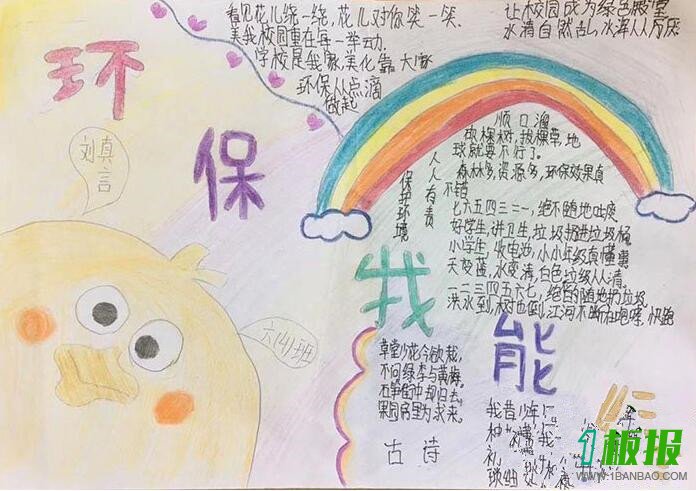 看见花儿绕一绕,花儿对你笑一笑
美我校园重在每一举动
学校是我家,美化靠大家
环保从点滴
做起
让校园成为绿色殿堂
水清白然
环
保
我
能
刘真言
六(4)班
保护环境
人人有责
顺口溜
砍棵树,拔棵草,地
球就要不行了。
森林多,资源多,环保效果真
不错
七六五四三二一,绝不随地吐痰
好学生,讲卫生,垃圾扔进垃圾桶
小学生,收电池,小小年级真懂事
天变蓝,水变清,白色垃圾从人清。
一二三四五六七,绝不随地扔垃圾
洪水到,树也倒,江河不断在咆哮,快跑
草堂少花今欲栽,
不问绿李与黄梅。
石笋街中却归去,
果园房里为求来。
古诗
我昔少年
种
1板报
WWW.1BANBAO.COM